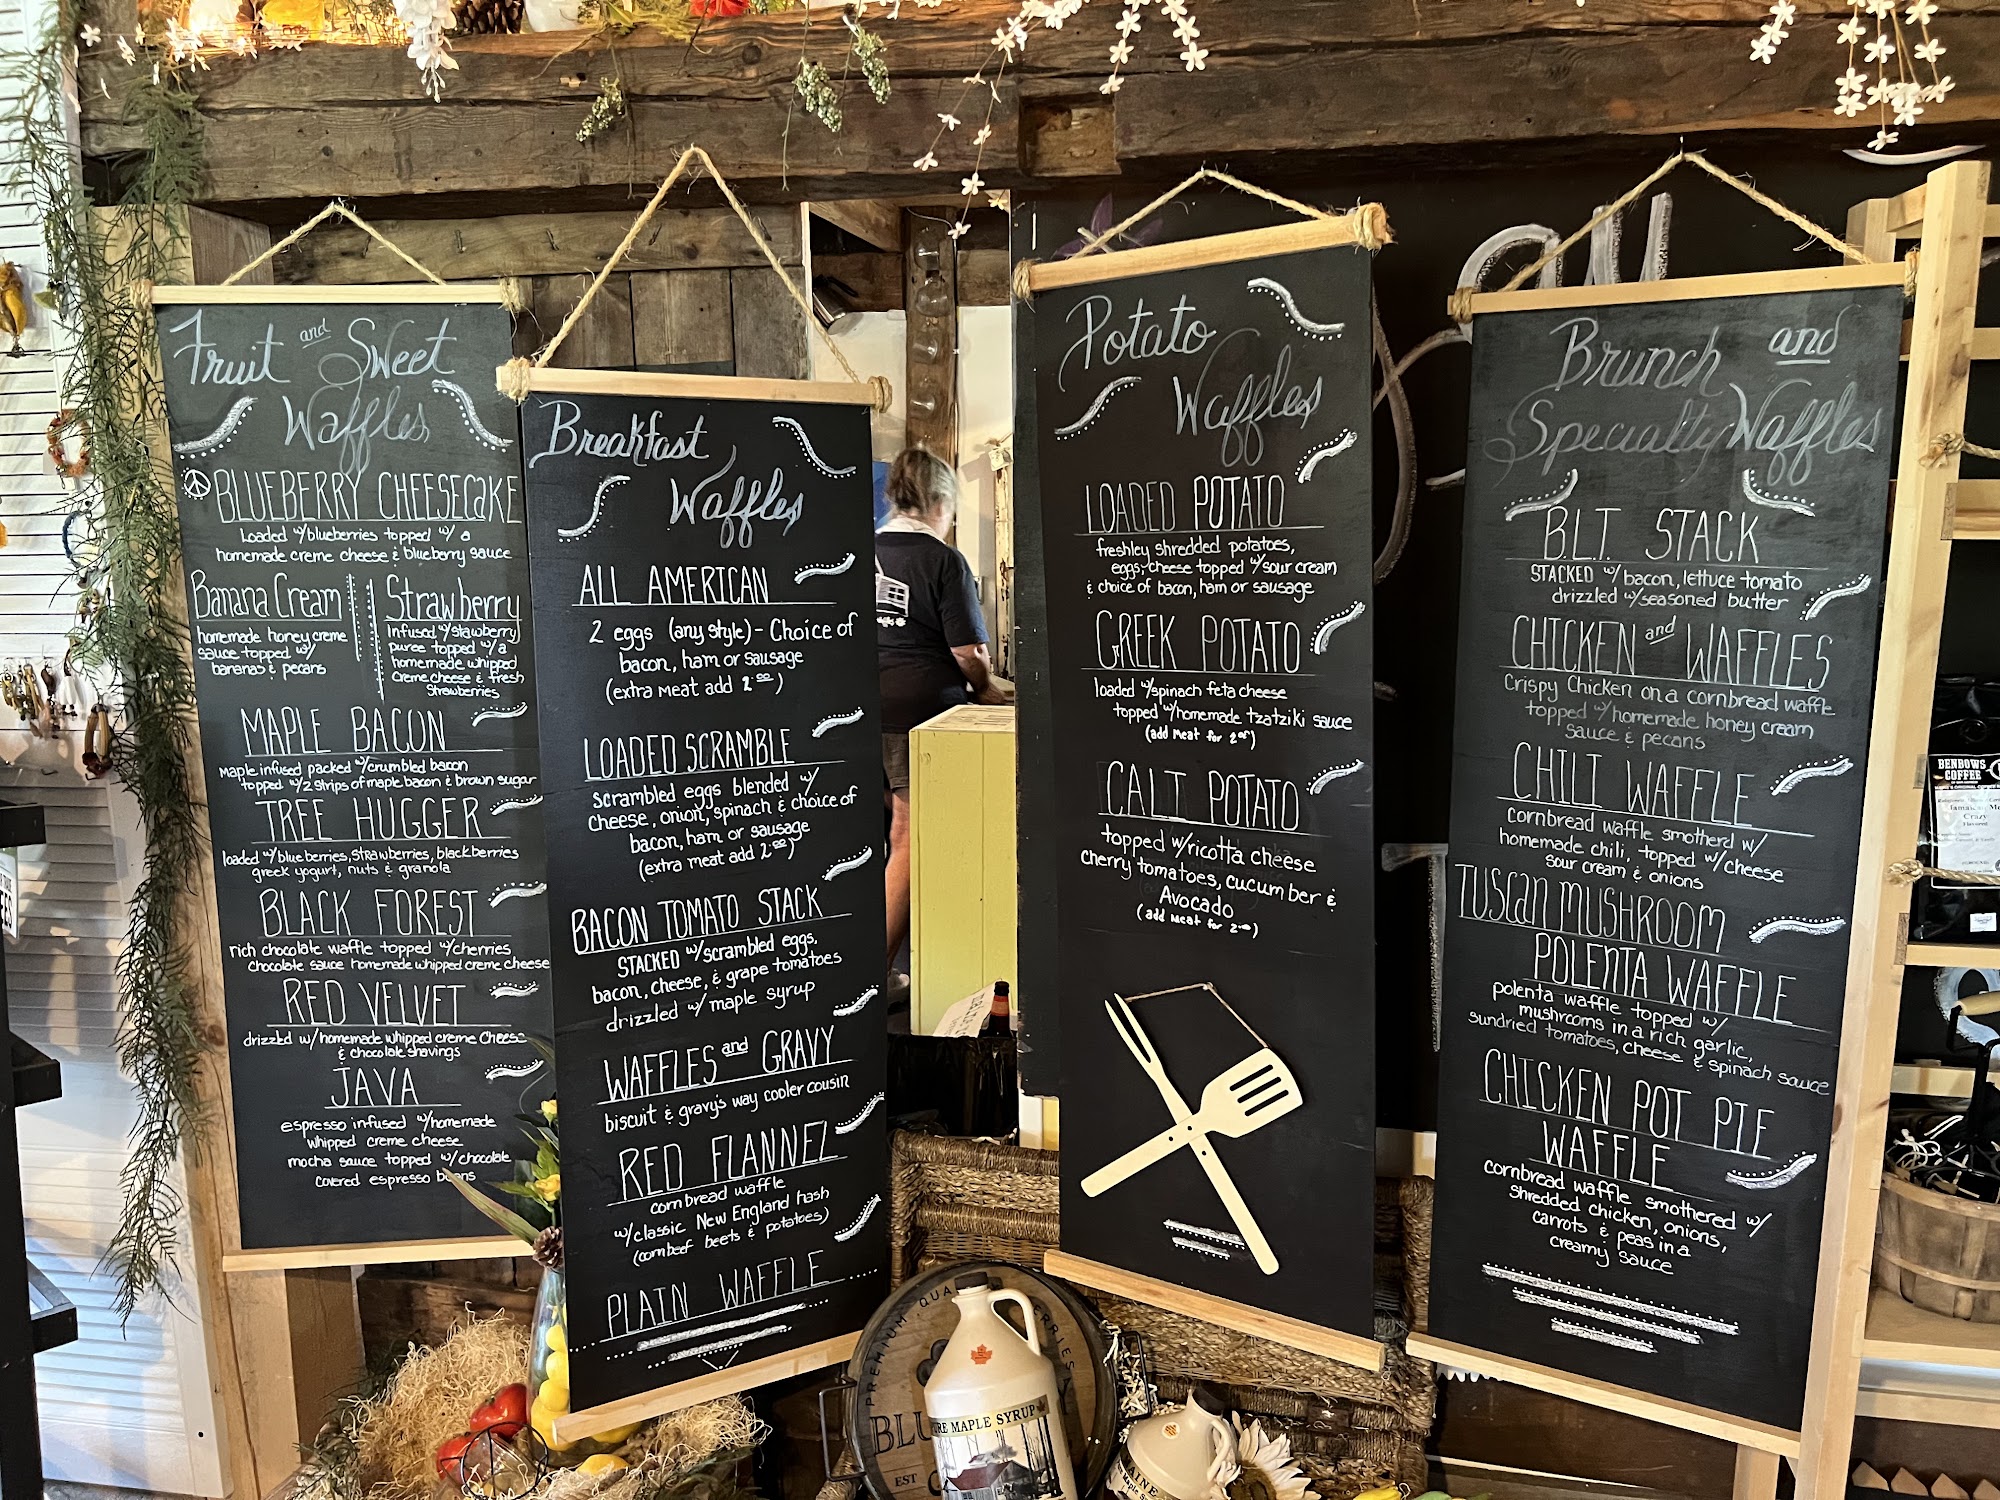 Fruit and Sweet
Waffles
BLUEBERRY CHEESECAKE
Loaded w/blueberries topped w/ a
homemade creme cheese & blueberry sauce
Banana Cream
homemade honey creme
sauce topped w/
bananas & pecans
Strawberry
infused w/strawberry
puree topped w/a
homemade whipped
creme cheese & fresh
strawberries
MAPLE BACON
Maple infused packed w/crumbled bacon
topped w/2 strips of maple bacon & brown sugar
TREE HUGGER
loaded w/blueberries, strawberries, blackberries
greek yogurt, nuts & granola
BLACK FOREST
rich chocolate waffle topped w/cherries
chocolate sauce homemade whipped creme cheese
RED VELVET
drizzled w/homemade whipped creme cheese
& chocolate shavings
JAVA
espresso infused w/homemade
whipped creme cheese
mocha sauce topped w/chocolate
covered espresso beans
Breakfast
Waffles
ALL AMERICAN
2 eggs (any style) - Choice of
bacon, ham or sausage
(extra meat add 2.00)
LOADED SCRAMBLE
scrambled eggs blended w/
cheese, onion, spinach & choice of
bacon, ham or sausage
(extra meat add 2.00)
BACON TOMATO STACK
STACKED w/scrambled eggs,
bacon, cheese, & grape tomatoes
drizzled w/ maple syrup
WAFFLES and GRAVY
biscuit & gravy's way cooler cousin
RED FLANNEL
cornbread waffle
w/classic New England hash
(cornbeef beets & potatoes)
PLAIN WAFFLE
Potato
Waffles
LOADED POTATO
freshley shredded potatoes,
eggs, cheese topped w/sour cream
& choice of bacon, ham or sausage
GREEK POTATO
loaded w/spinach feta cheese
topped w/homemade tzatziki sauce
(add meat for 2.00)
CALI POTATO
topped w/ricotta cheese
cherry tomatoes, cucumber &
Avocado
(add meat for 2.00)
Brunch and
Specialty Waffles
B.L.T. STACK
STACKED w/bacon, lettuce tomato
drizzled w/seasoned butter
CHICKEN and WAFFLES
Crispy Chicken on a cornbread waffle
topped w/homemade honey cream
sauce & pecans
CHILI WAFFLE
cornbread waffle smotherd w/
homemade chili, topped w/cheese
sour cream & onions
TUSCAN MUSHROOM
POLENTA WAFFLE
polenta waffle topped w/
mushrooms in a rich garlic,
sundried tomatoes, cheese & spinach sauce
CHICKEN POT PIE
WAFFLE
cornbread waffle smothered w/
shredded chicken, onions,
carrots & peas in a
creamy sauce
BENBOWS
COFFEE
Crazy
Flavored
PREMIUM QUA
ERRIES
BLU
EST
URE MAPLE SYRUP
MAINE